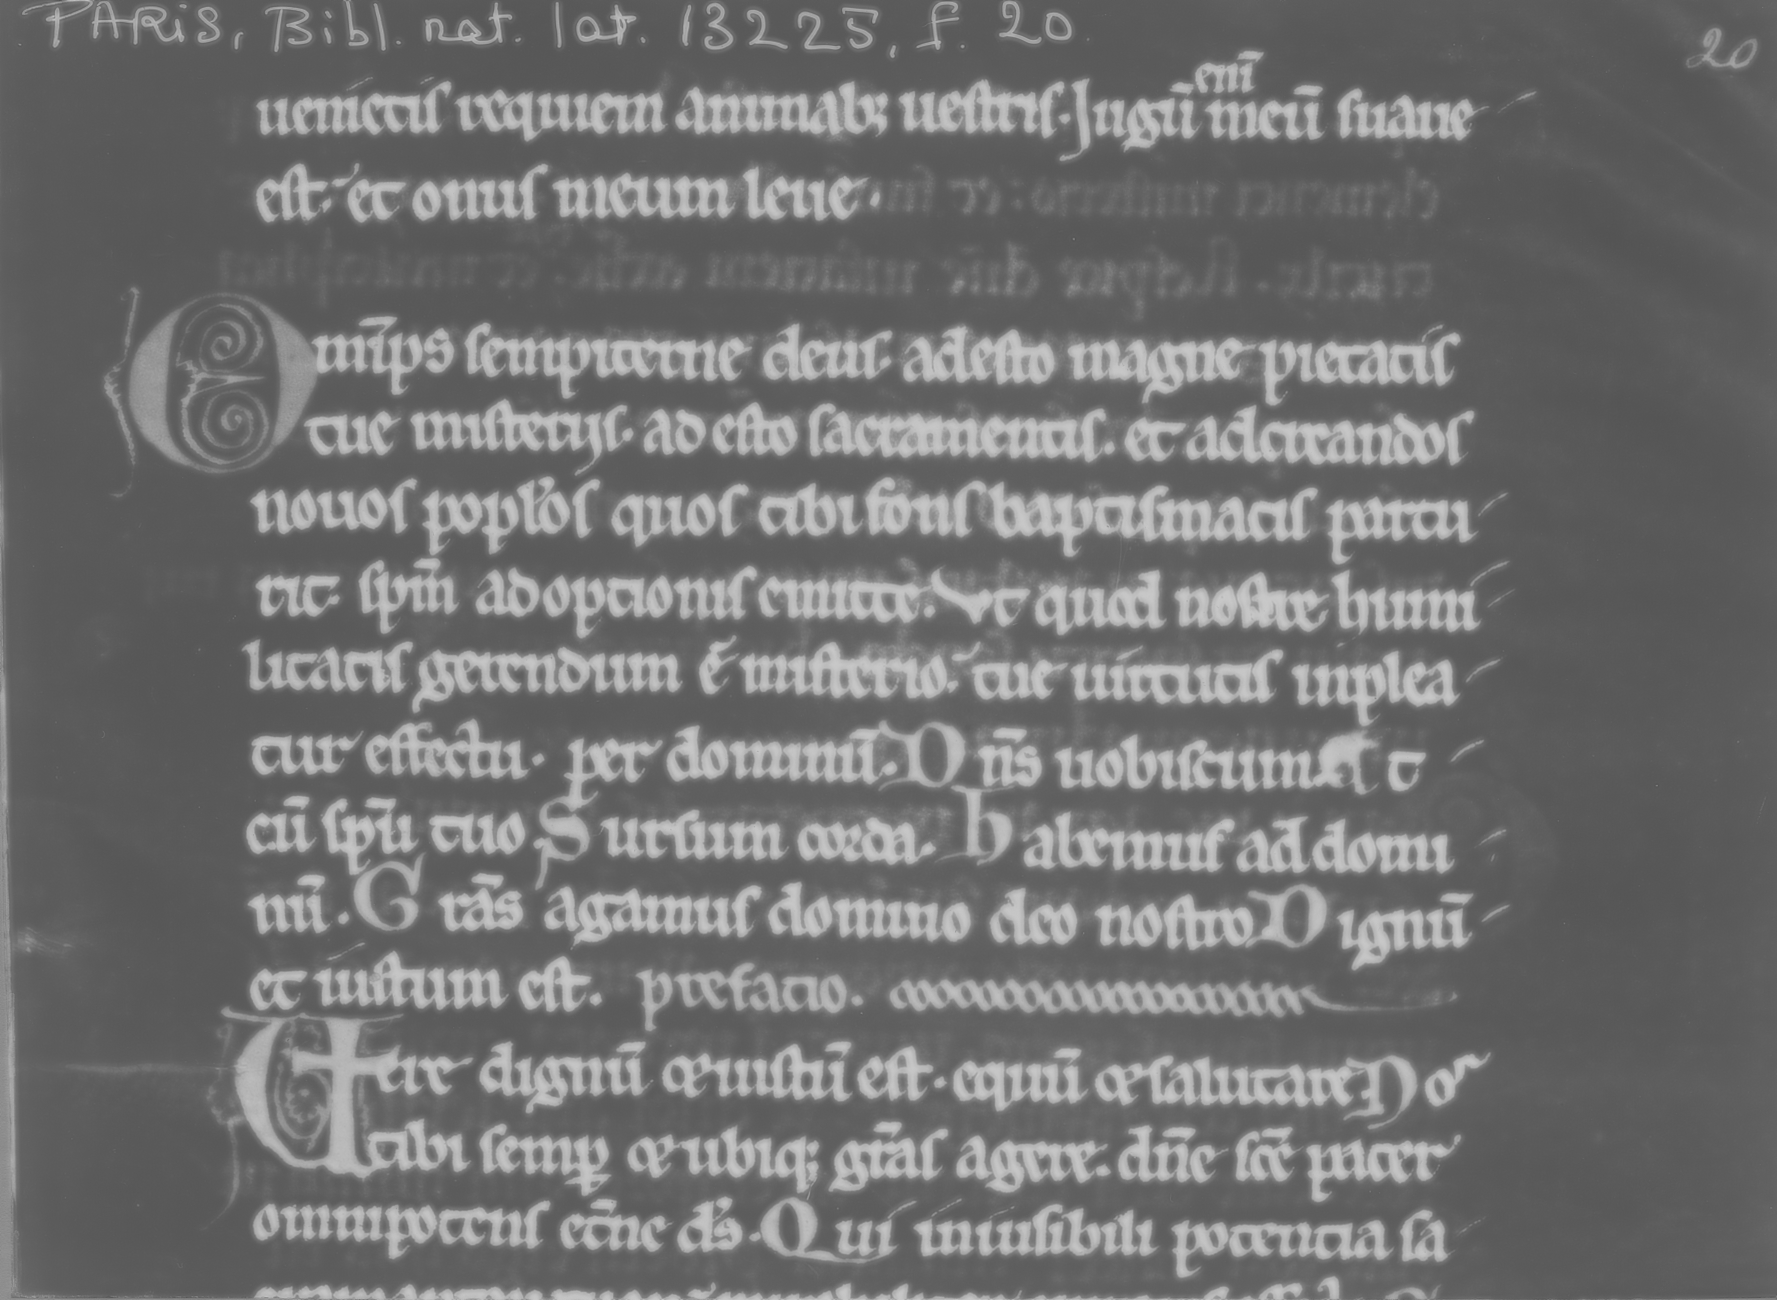 PARIS, Bibl. nat. lat. 13225, f. 20
20
enī
uenietis requiem animab; uestris. Jugū meū suaue
est. et onus meum leue.
Omīps sempiterne deus. adesto magne pietatis
tue misterijs. ad esto sacramentis. et ad creandos
nouos poplos quos tibi fons baptismatis partu
rit. spm̄ adoptionis emitte. Vt quod nostre humi
litatis gerendum ē misterio. tue uirtutis inplea
tur effectu. per dominū. Dn̄s uobiscum. Et
cū spū tuo. Sursum corda. Habemus ad domi
nū. Grās agamus domino deo nostro. Dignū
et iustum est. prefatio.
Uere dignū et iustū est. equū et salutare. Nos
tibi semp̱ et ubiq; grās agere. dn̄e scē pater
omnipotens etn̄e ds. Qui inuisibili potentia sa